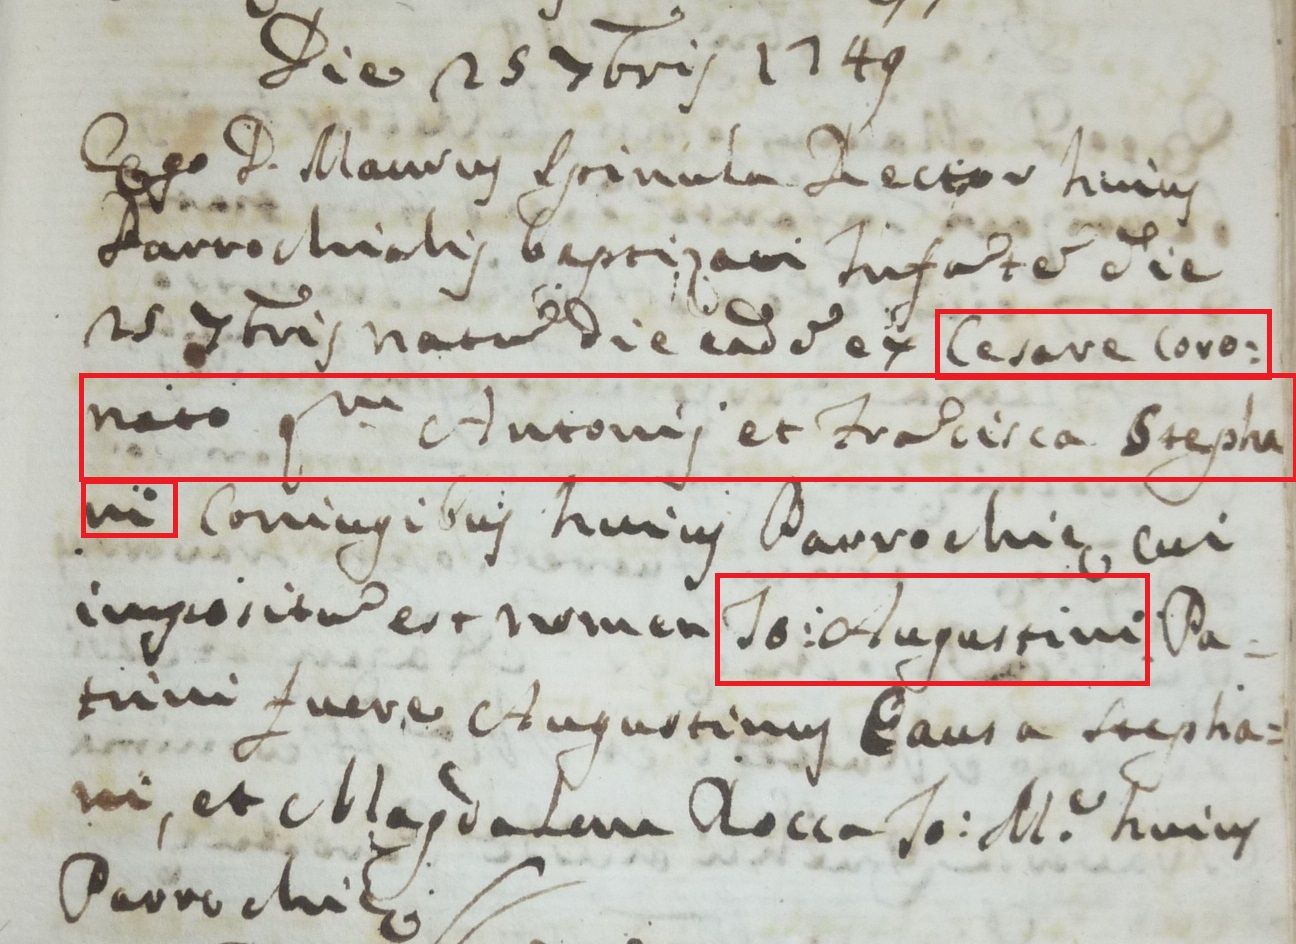 Die 25 7bris 1749
Ego D. Maurus Spinula Rector huius
Parrochialis baptizavi Infãtẽ die
25 7bris natũ die eadẽ ex Cesare Coro=
nato qm Antonij et Frãcisca Stepha
ni Coniugibus huius Parrochię cui
impositũ est nomen Jo: Augustini Pa-
trini fuere Augustinus Causa Stepha=
ni, et Magdalena Rocca Jo: M.ę huius
Parrochię